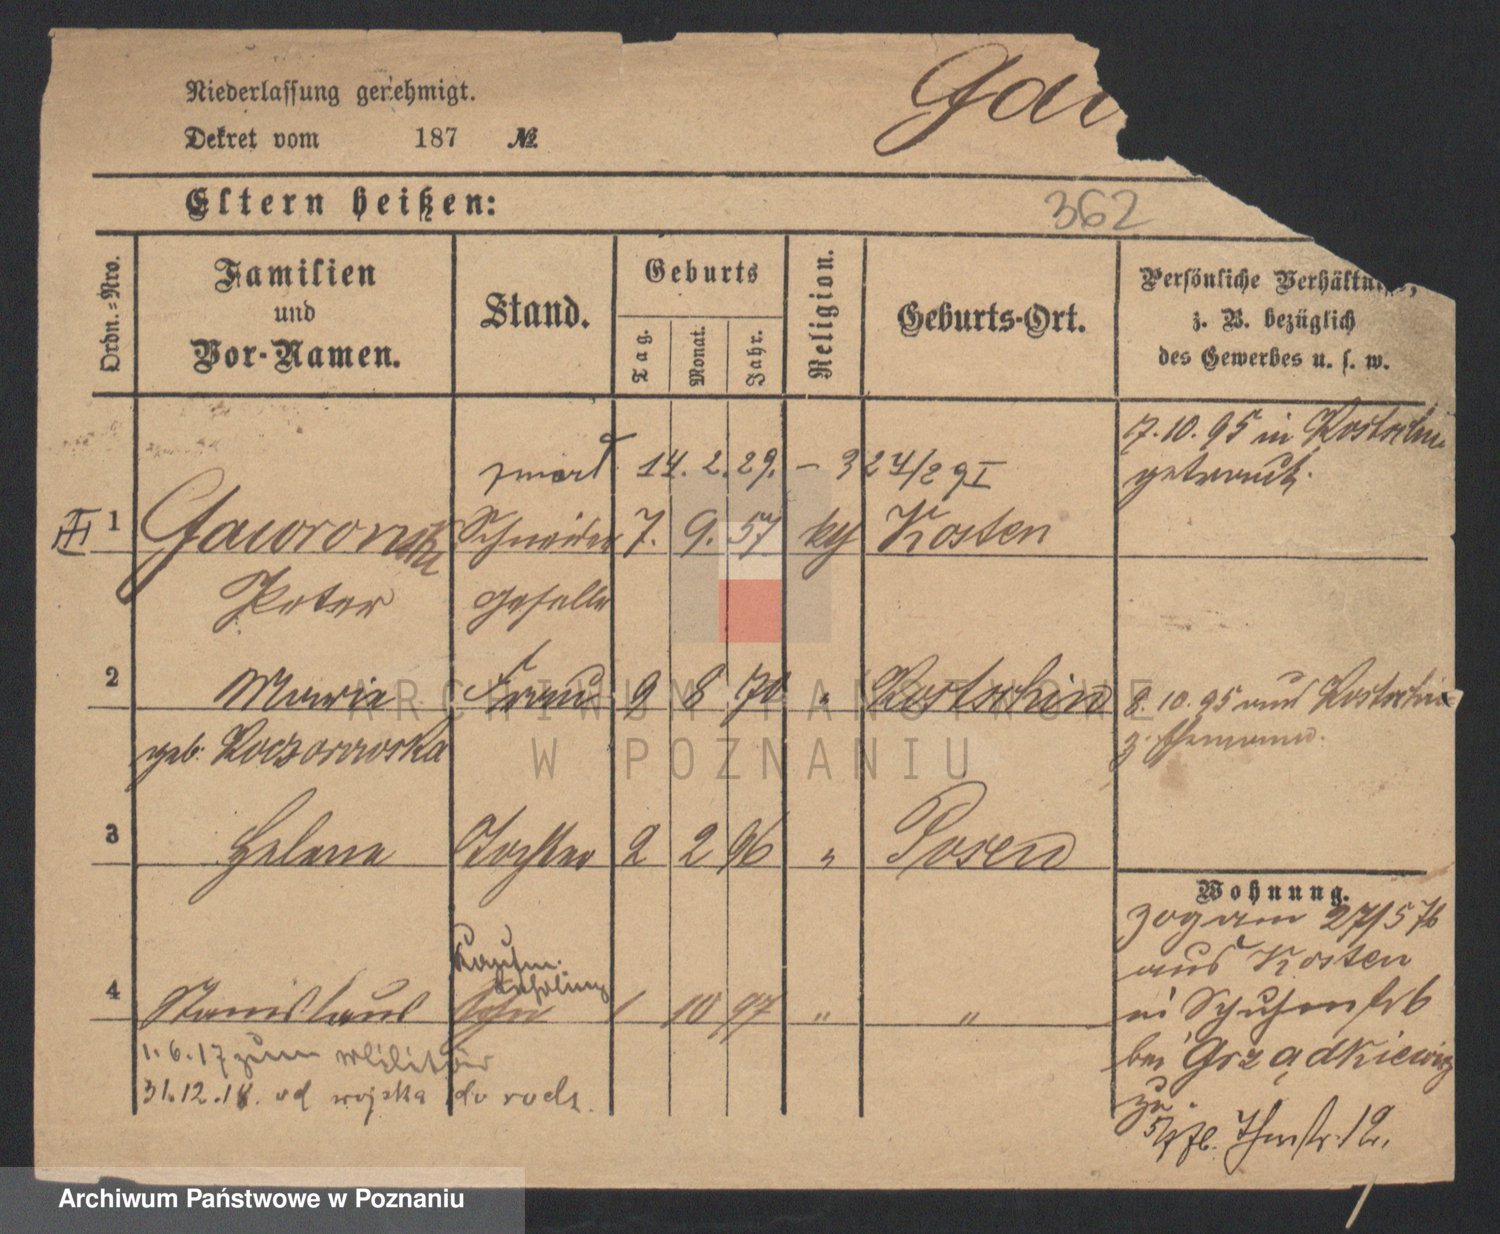 Niederlassung genehmigt.
Dekret vom 187 №
Gaw
Eltern heißen:
362
Ordn.=Nro.
Familien und Vor-Namen.
Stand.
Geburts
Tag. Monat. Jahr.
Religion.
Geburts-Ort.
Persönliche Verhältnisse,
z. B. bezüglich
des Gewerbes u. s. w.
7. 10. 95 in Kostschin
getraut.
zmarł 14. 2. 29. – 324/29 I
III 1 Gaworonska Schneider 7. 9. 57 kg Kosten
Peter geselle
2 Maria Frau 9 8 70 " Kostschin 8. 10. 95 aus Kostschin
geb. Koczorowska z. Ehemann.
3 Helene Tochter 2 2 96 " Posen
Wohnung.
zog am 27/5 76
aus Kosten
Kaufm.
Lehrling
4 Stanislaus Sohn 1 10 97 " "
n. Schuhmstr 6
1. 6. 17 zum Militär
bei Grządkiewicz
31. 12. 18. od wojska do rodz.
zu.
12.
ARCHIWUM PAŃSTWOWE
W POZNANIU
Archiwum Państwowe w Poznaniu